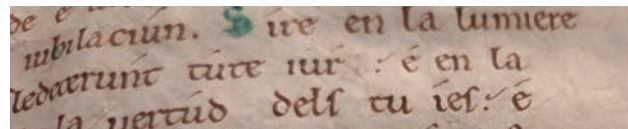 iubilaciún. Sire en la lumiere
ledecerunt tute iur : é en la
la uertúd delſ tu ieſ: é